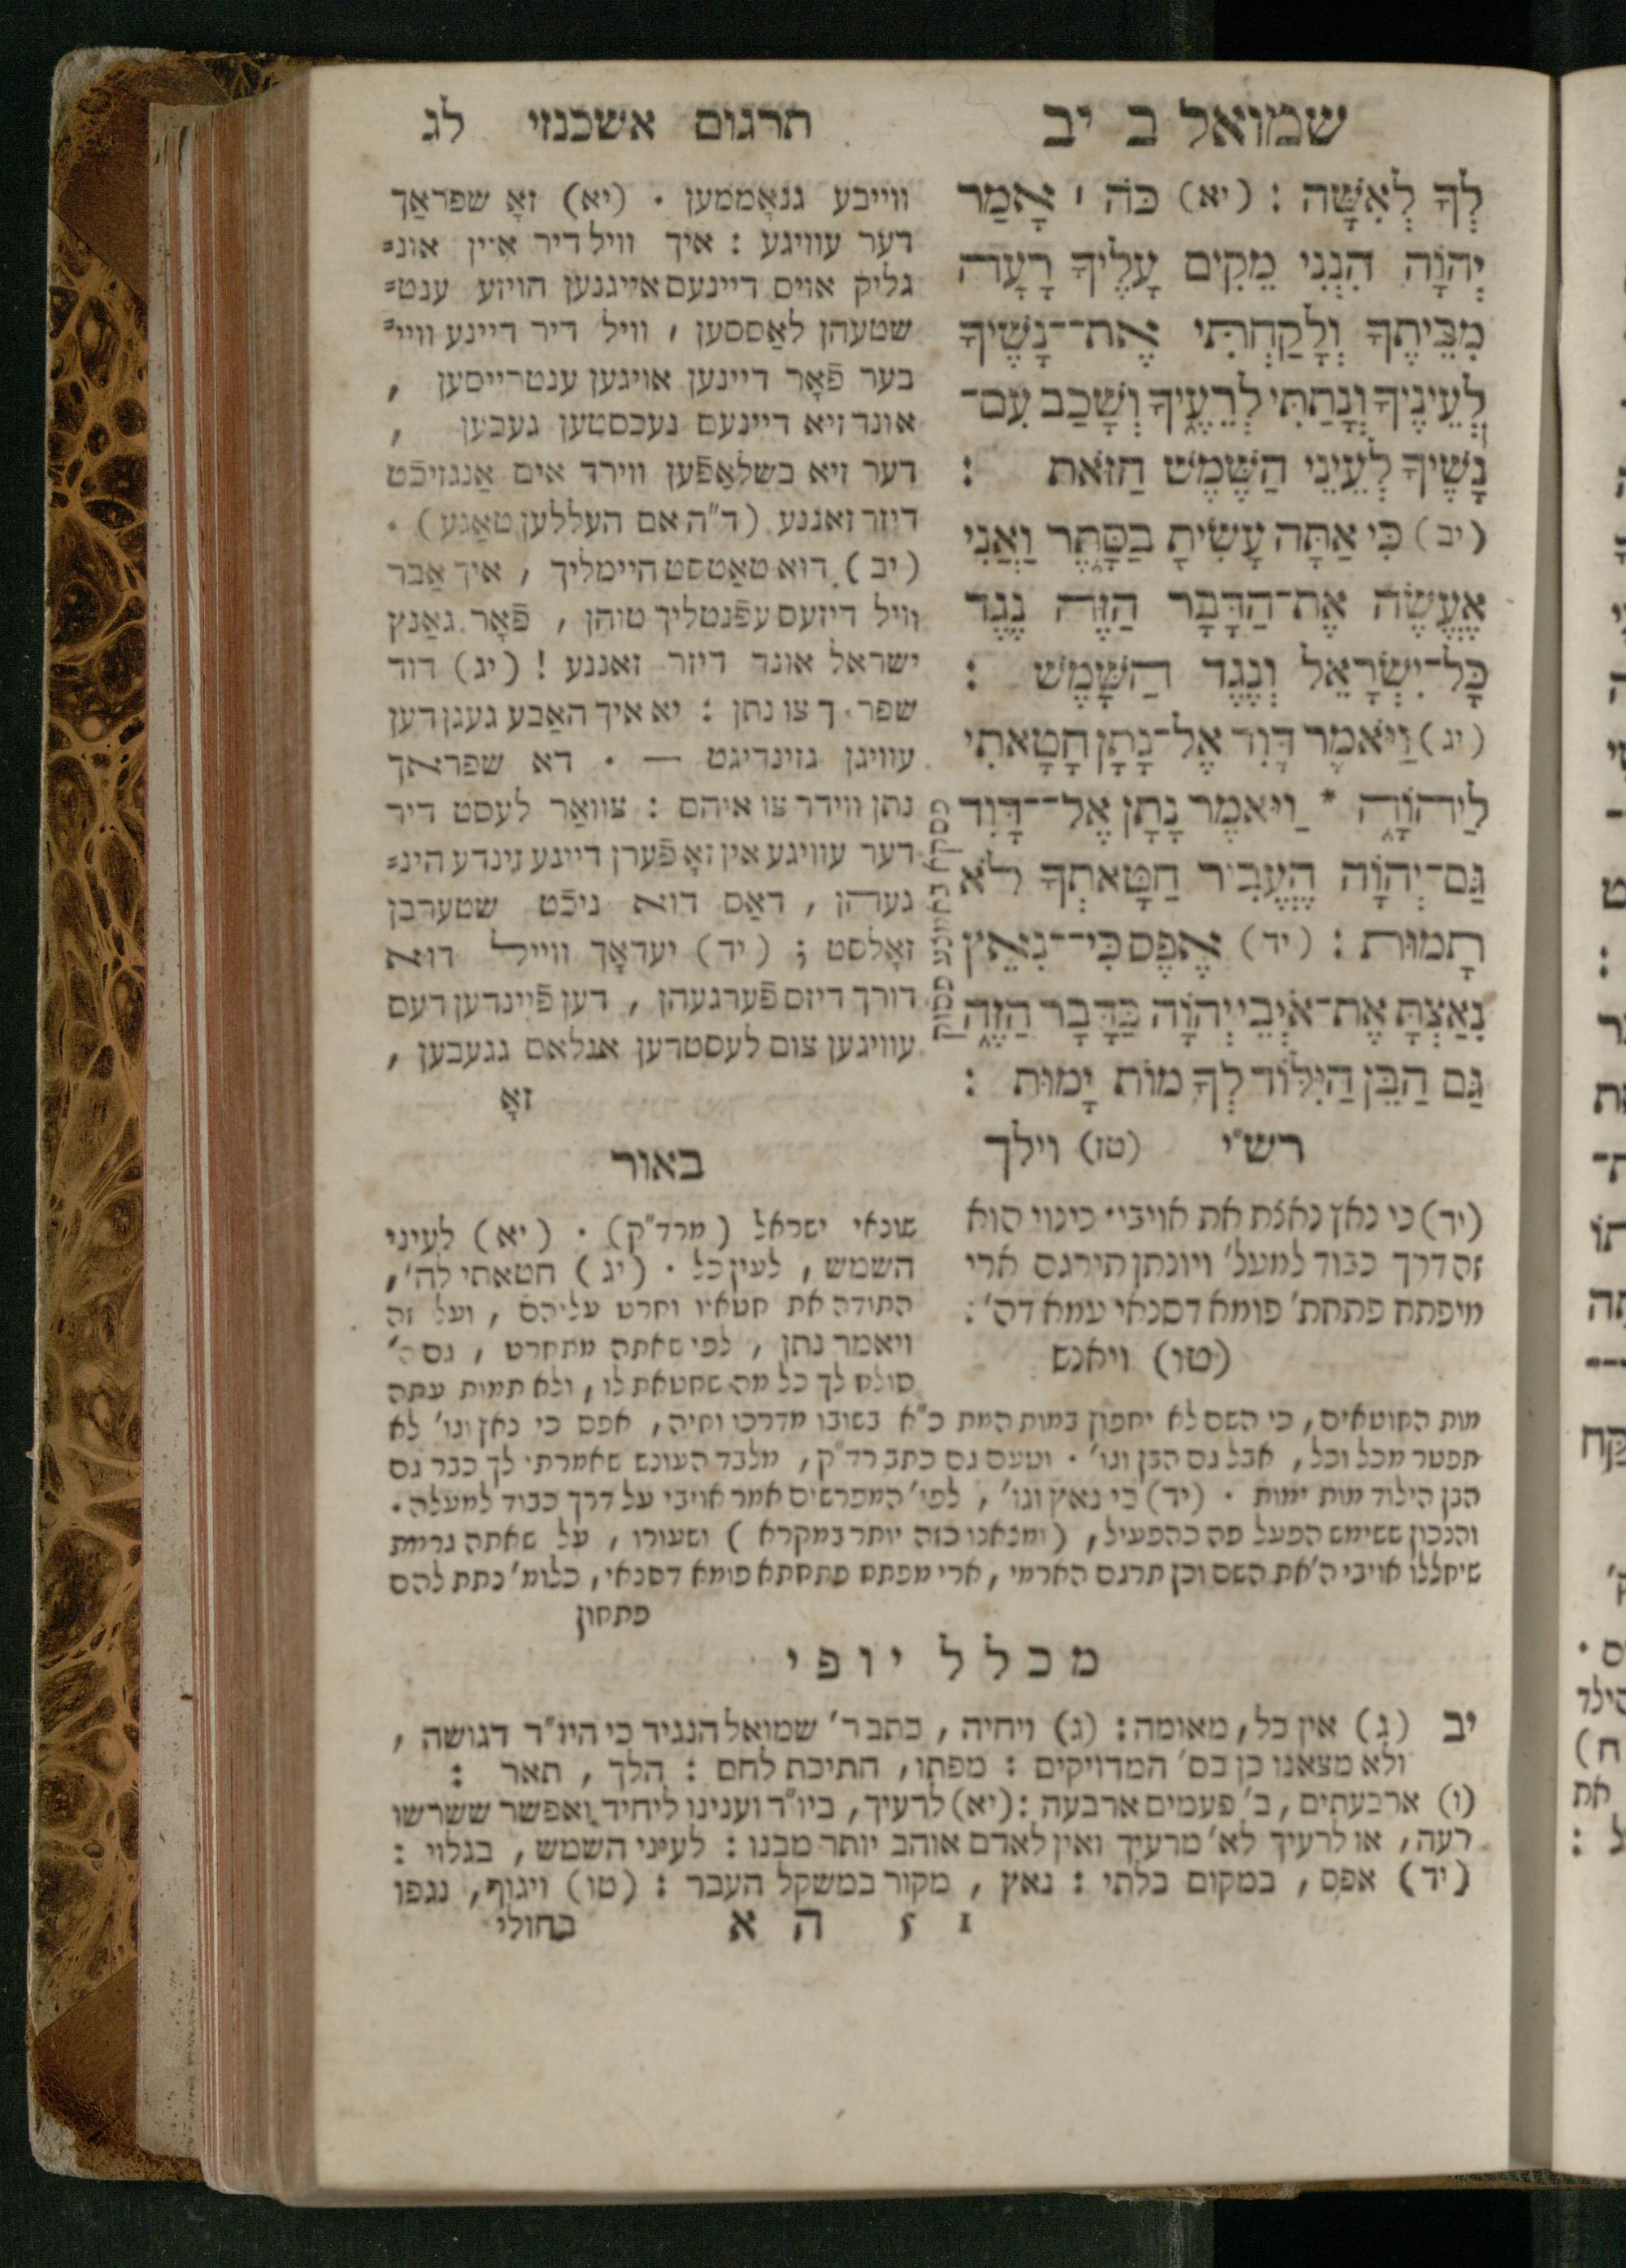 שמואל ב יב
תרגום אשכנזי לג
לְךָ לְאִשָּׁה : (יא) כֹּה ׀ אָמַר
יְהוָֹה הִנְנִי מֵקִים עָלֶיךָ רָעָה
מִבֵּיתֶךָ וְלָקַחְתִּי אֶת־נָשֶׁיךָ
לְעֵינֶיךָ וְנָתַתִּי לְרֵעֶיךָ וְשָׁכַב עִם־
נָשֶׁיךָ לְעֵינֵי הַשֶּׁמֶשׁ הַזֹּאת :
(יב) כִּי אַתָּה עָשִׂיתָ בַסָּתֶר וַאֲנִי
אֶעֱשֶׂה אֶת־הַדָּבָר הַזֶּה נֶגֶד
כָּל־יִשְׂרָאֵל וְנֶגֶד הַשָּׁמֶשׁ :
(יג) וַיֹּאמֶר דָּוִד אֶל־נָתָן חָטָאתִי
לַיהוָֹה * וַיֹּאמֶר נָתָן אֶל־דָּוִד
גַּם־יְהוָֹה הֶעֱבִיר חַטָּאתְךָ לֹא
תָמוּת : (יד) אֶפֶס כִּי־נִאֵץ
נִאַצְתָּ אֶת־אֹיְבֵי יְהוָֹה בַּדָּבָר הַזֶּה
גַּם הַבֵּן הַיִּלּוֹד לְךָ מוֹת יָמוּת :
פסקא באמצע פסוק
ווייבע גנאָממען . (יא) זאָ שפראַך
דער עוויגע : איך וויל דיר אײן אונ=
גליק אויס דיינעם אייגנען הויזע ענט=
שטעהן לאַססען , וויל דיר דיינע וויי=
בער פֿאָר דיינען אויגען ענטרייסען ,
אונד זיא דיינעם נעכסטען געבען ,
דער זיא בשלאַפֿען ווירד אים אַנגזיכֿט
דיזר זאננע (ד"ה אם העללען טאַגע) .
(יב) דוא טאַטסט היימליך , איך אַבר
וויל דיזעס עפֿנטליך טוהן , פֿאָר גאַנץ
ישראל אונד דיזר זאננע ! (יג) דוד
שפר ך צו נתן : יא איך האַבע געגן דען
עוויגן גזינדיגט — . דא שפראך
נתן ווידר צו איהם : צוואַר לעסט דיר
דער עוויגע אין זאָפֿערן דיינע זינדע הינ=
געהן , דאַס דוא ניכֿט שטערבן
זאָלסט ; (יד) יעדאָך ווייל דוא
דורך דיזס פֿערגעהן , דען פֿיינדען דעס
עוויגען צום לעסטרען אנלאס געגעבען ,
זאָ
רש"י (טז) וילך
(יד) כי נאץ נאצת את אויבי כינוי הוא
זה דרך כבוד למעל' ויונתן תירגם ארי
מיפתח פתחת' פומא דסנאי עמא דה' :
(טו) ויאנש
באור
שונאי ישראל (מרד"ק) . (יא) לעיני
השמש , לעין כל . (יג) חטאתי לה' ,
התודה את חטאיו וחרט עליהם , ועל זה
ויאמר נתן , לפי שאתה מתחרט , גם ה'
סולח לך כל מה שחטאת לו , ולא תמות עתה
מות החוטאים , כי השם לא יחפוץ במות המת כ"א בשובו מדרכו וחיה , אפס כי נאץ וגו' לא
תפטר מכל וכל , אבל גם הבן וגו' . וטעם גם כתב רד"ק , מלבד העונש שאמרתי לך כבר גם
הבן הילוד מות ימות . (יד) כי נאץ וגו' , לפי' המפרשים אמר אויבי על דרך כבוד למעלה .
והנכון ששימש הפעל פה כהפעיל , (ומצאנו כזה יותר במקרא) ושעורו , על שאתה גרמת
שיחללו אויבי ה' את השם וכן תרגם הארמי , ארי מפתח פתחתא פומא דסנאי , כלומ' נתת להם
פתחון
מכלל יופי
יב (ג) אין כל , מאומה : (ג) ויחיה , כתב ר' שמואל הנגיד כי היו"ד דגושה ,
ולא מצאנו כן בס' המדוייקים : מפתו , חתיכת לחם : הלך , תאר :
(ו) ארבעתים , ב' פעמים ארבעה : (יא) לרעיך , ביו"ד וענינו ליחיד ואפשר ששרשו
רעה , או לרעיך לא' מרעיך ואין לאדם אוהב יותר מבנו : לעיני השמש , בגלוי :
(יד) אפס , במקום בלתי : נאץ , מקור במשקל העבר : (טו) ויגוף , נגפו
ה א בחולי